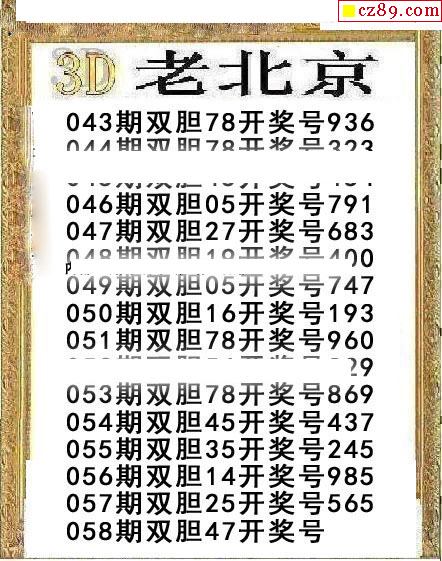 cz89.com
3D 老北京
043期双胆78开奖号936
044期双胆78开奖号323
046期双胆05开奖号791
047期双胆27开奖号683
048期双胆19开奖号400
049期双胆05开奖号747
050期双胆16开奖号193
051期双胆78开奖号960
29
053期双胆78开奖号869
054期双胆45开奖号437
055期双胆35开奖号245
056期双胆14开奖号985
057期双胆25开奖号565
058期双胆47开奖号